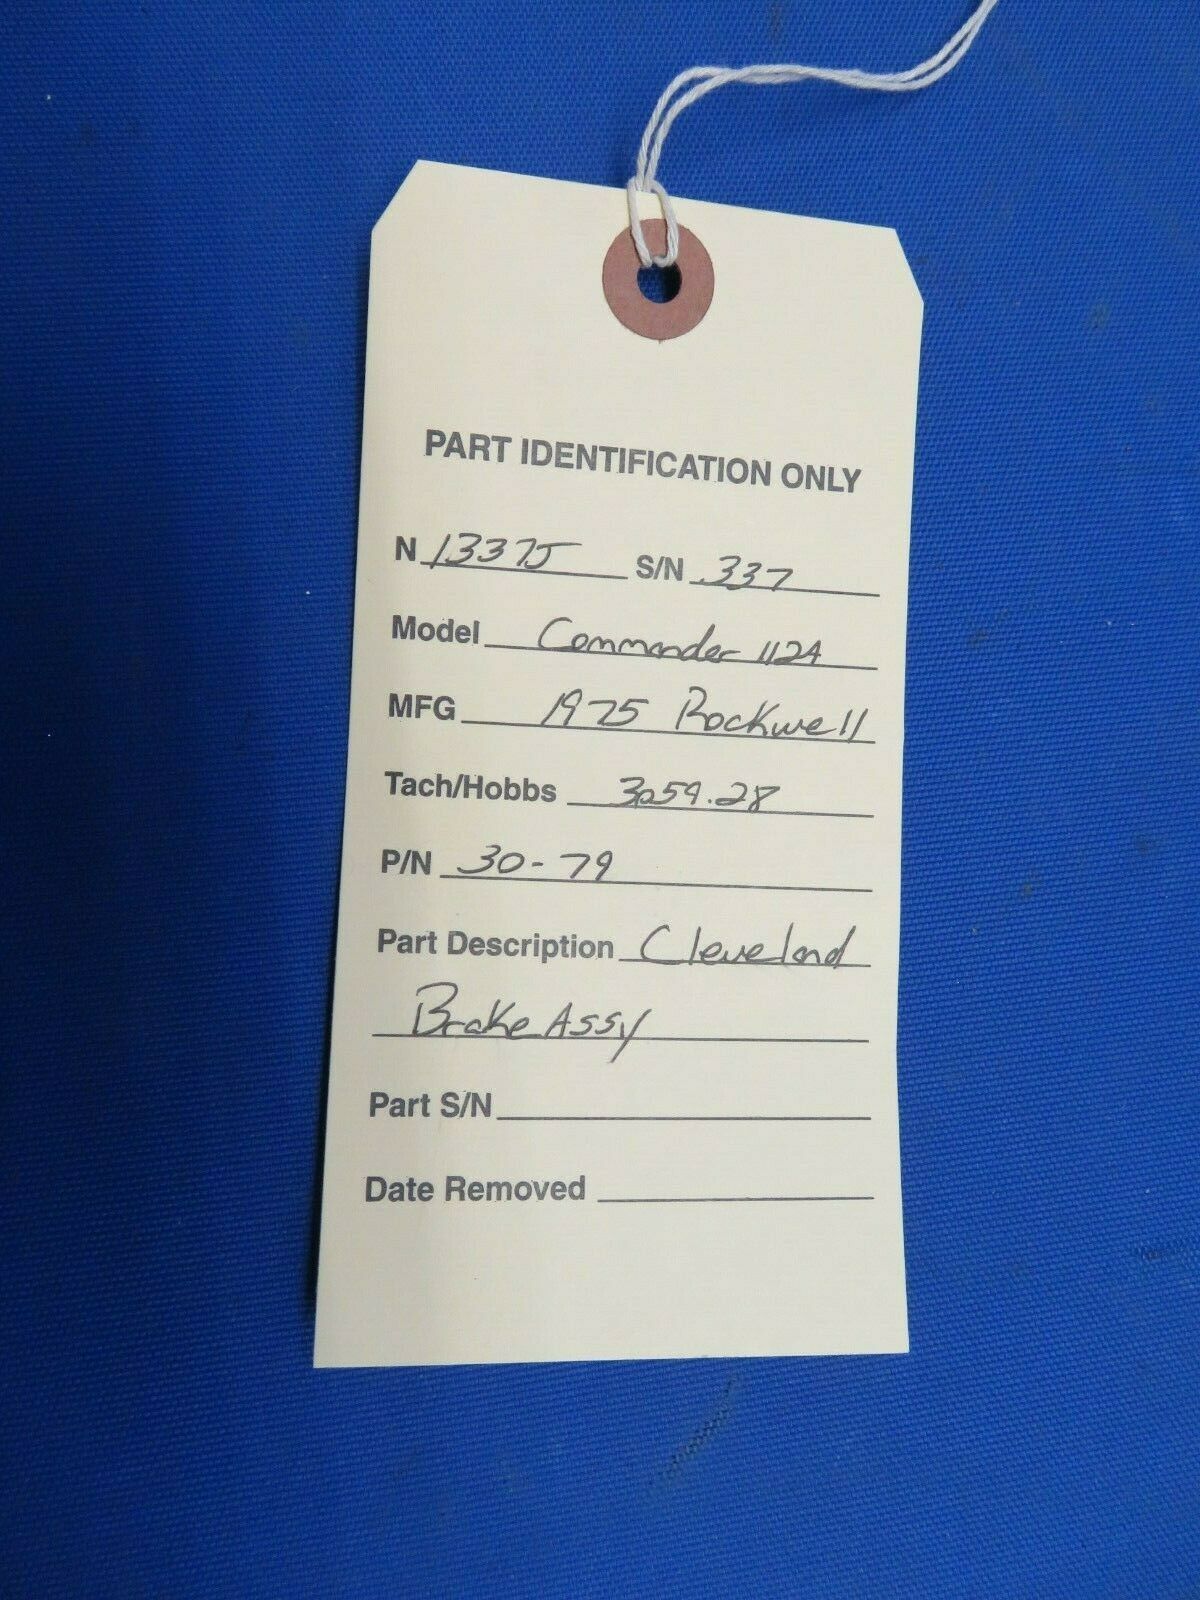 PART IDENTIFICATION ONLY
N 1337J S/N 337
Model Commander 112A
MFG 1975 Rockwell
Tach/Hobbs 3059.28
P/N 30-79
Part Description Cleveland
Brake Assy
Part S/N
Date Removed